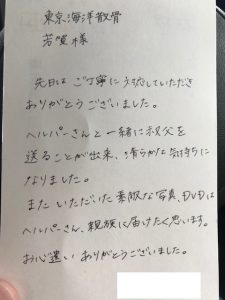 東京海洋散骨
若賀様
先日は ご丁寧に対応していただき
ありがとうございました。
ヘルパーさんと一緒に叔父を
送ることが出来、清らかな気持ちに
なりました。
また いただいた素敵な写真、DVDは
ヘルパーさん、親族に届けたく思います。
お心遣い ありがとうございました。